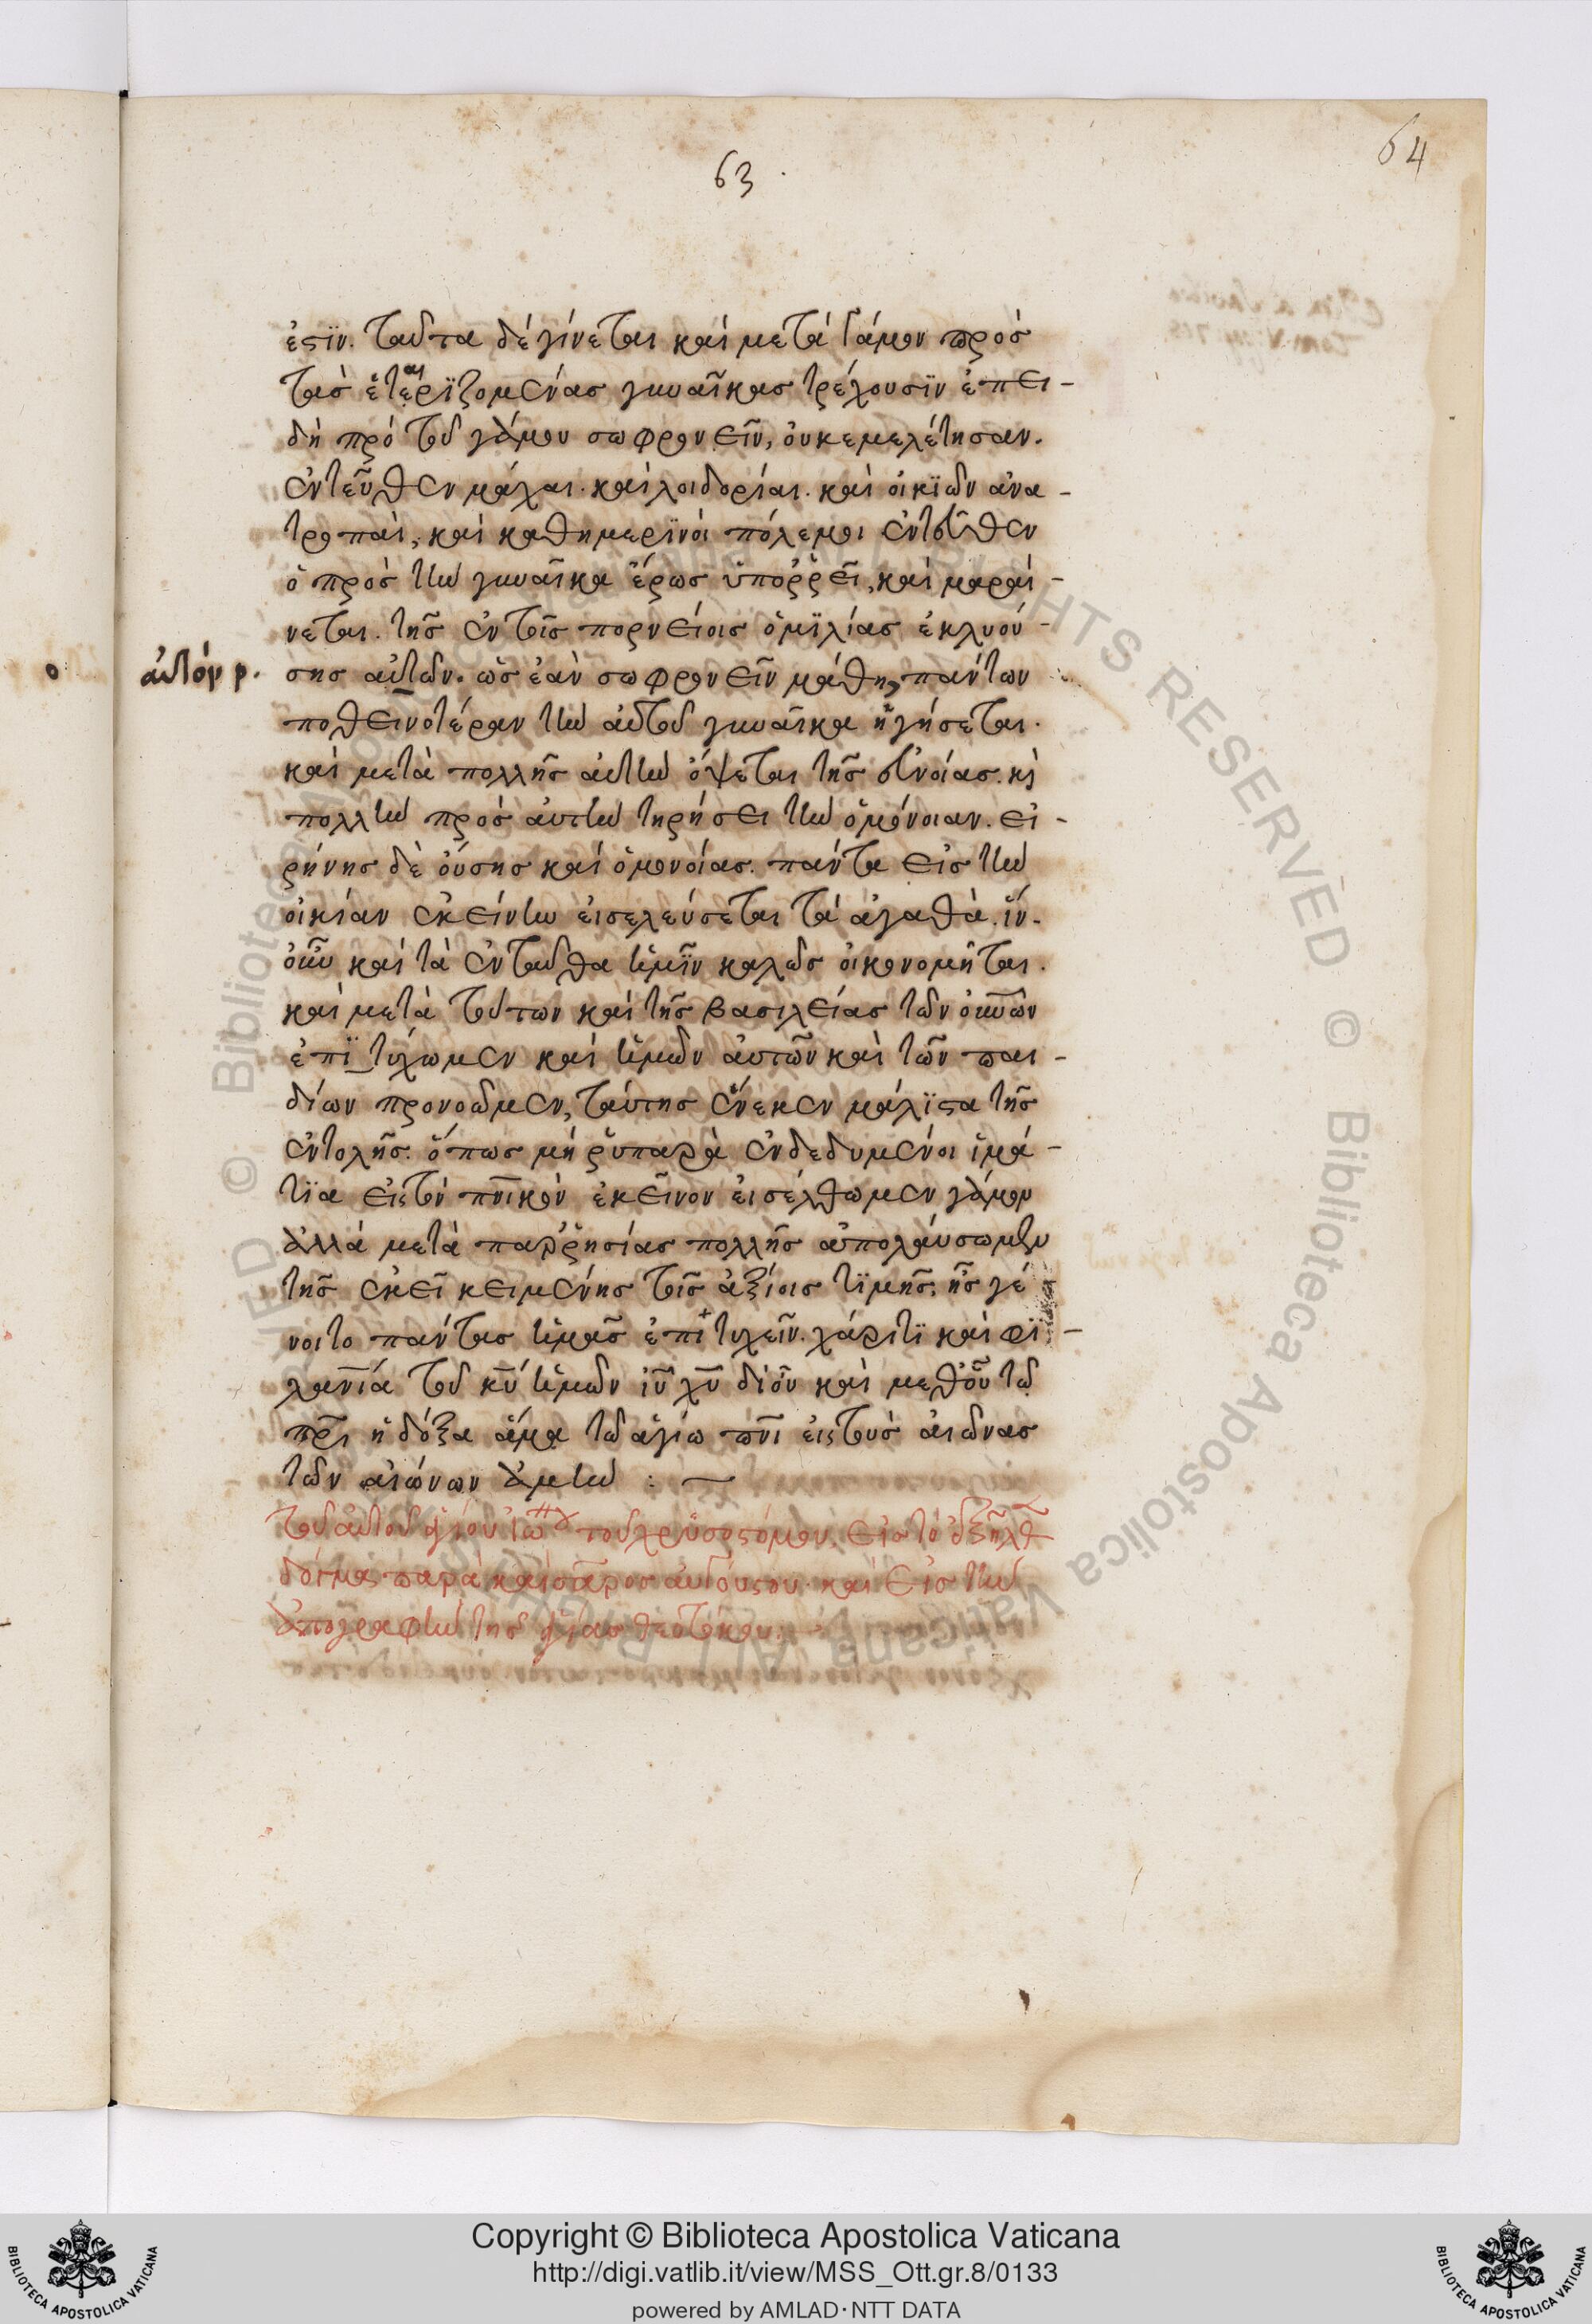 63.
64
ἐστϊν. ταῦτα δὲ γίνεται καὶ μετὰ γάμον πρὸσ
τὰσ ἑτεαιρϊζομένασ γυναῖκασ τρέχουσϊν ἐπει-
δὴ πρὸ τοῦ γάμου σωφρονεῖν, οὐκ ἐμελέτησαν.
ἐντεῦθεν μάχαι. καὶ λοιδορίαι. καὶ οἰκϊῶν ἀνα-
τροπαὶ, καὶ καθημερϊνοὶ πόλεμοι ἐντεῦθεν
ὁ πρὸσ τὴν γυναῖκα ἔρωσ ὑπορῥεῖ, καὶ μαραί-
νεται. τῆσ ἐν τοῖσ πορνείοισ ὁμϊλίασ ἐκλυού-
αὐτὸν ρ. σησ αὐτῶν. ὡσ ἐὰν σωφρονεῖν μάθῃ, πάντων
ποθεινοτέραν τὴν αὐτοῦ γυναῖκα ἡγήσεται.
καὶ μετὰ πολλῆσ αὐτὴν ὄψεται τῆσ εὐνοίασ. κὶ
πολλὴν πρὸσ αὐτὴν τηρήσει τὴν ὁμόνοιαν. εἰ-
ρήνησ δὲ οὔσησ καὶ ὁμονοίασ. πάντα εἰσ τὴν
οἰκίαν ἐκείνην εἰσελεύσεται τὰ ἀγαθὰ. ἵν-
οὖν καὶ τὰ ἐνταῦθα ἡμῖν καλῶσ οἰκονομῆται.
καὶ μετὰ τούτων καὶ τῆσ βασιλείασ τῶν οὐνῶν
ἐπϊτύχωμεν καὶ ἡμῶν αὐτῶν καὶ τῶν παι-
δίων προνοῶμεν, ταύτησ ἕνεκεν μάλϊστα τῆσ
ἐντολῆσ. ὅπωσ μὴ ῥυπαρὰ ἐνδεδυμένοι ἱμά-
τϊα εἰς τὸν πνικὸν ἐκεῖνον εἰσέλθωμεν γάμον
ἀλλὰ μετὰ παρῤησίασ πολλῆσ ἀπολαύσωμεν
τῆσ ἐκεῖ κειμένησ τοῖσ ἀξίοισ τϊμῆσ. ἧσ γέ
νοιτο πάντασ ἡμᾶσ ἐπιτυχεῖν. χάριτϊ καὶ φϊ-
λανία τοῦ κυ ἡμῶν ιυ χυ δι οὗ καὶ μεθ οὗ τῶ
πρι ἡ δόξα ἅμα τῶ ἁγίω πνι εἰς τοὺσ αἰῶνασ
τῶν αἰώνων ἀμήν : —
τοῦ αὐτοῦ ἁγίου ἰω του χρυσοστόμου. εἰσ τὸ ἐξῆλθ
δόγμα παρὰ καίσαροσ αὐγούστου. καὶ εἰσ τὴν
ἀπογραφὴν τῆσ ἁγίασ θεοτόκου:
Copyright © Biblioteca Apostolica Vaticana
http://digi.vatlib.it/view/MSS_Ott.gr.8/0133
powered by AMLAD·NTT DATA
BIBLIOTECA APOSTOLICA VATICANA
BIBLIOTECA APOSTOLICA VATICANA